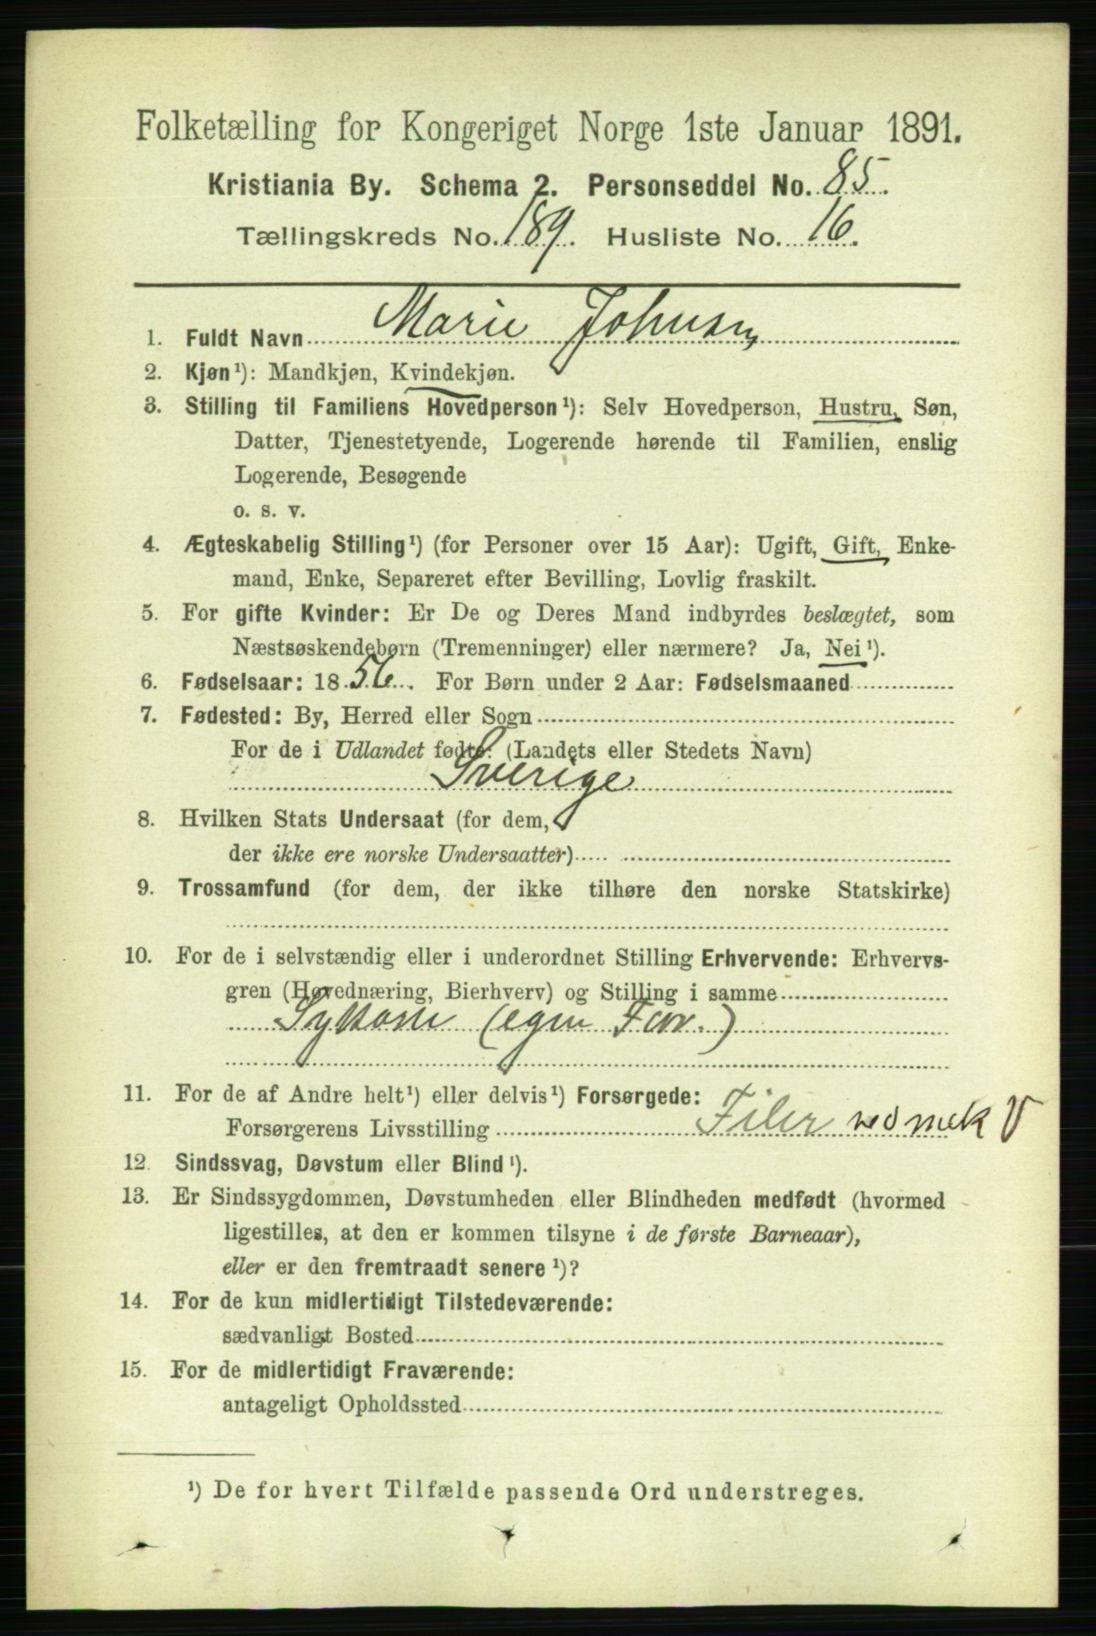 Folketælling for Kongeriget Norge 1ste Januar 1891.
Kristiania By. Schema 2. Personseddel No. 85.
Tællingskreds No. 189. Husliste No. 16.
1. Fuldt Navn Marie Johnsen
2. Kjøn¹): Mandkjøn, Kvindekjøn.
3. Stilling til Familiens Hovedperson¹): Selv Hovedperson, Hustru, Søn,
Datter, Tjenestetyende, Logerende hørende til Familien, enslig
Logerende, Besøgende
o. s. v.
4. Ægteskabelig Stilling¹) (for Personer over 15 Aar): Ugift, Gift, Enke-
mand, Enke, Separeret efter Bevilling, Lovlig fraskilt.
5. For gifte Kvinder: Er De og Deres Mand indbyrdes beslægtet, som
Næstsøskendebørn (Tremenninger) eller nærmere? Ja, Nei¹).
6. Fødselsaar: 1856. For Børn under 2 Aar: Fødselsmaaned
7. Fødested: By, Herred eller Sogn
For de i Udlandet fødte: (Landets eller Stedets Navn)
Sverige
8. Hvilken Stats Undersaat (for dem,
der ikke ere norske Undersaatter)
9. Trossamfund (for dem, der ikke tilhøre den norske Statskirke)
10. For de i selvstændig eller i underordnet Stilling Erhvervende: Erhvervs-
gren (Hovednæring, Bierhverv) og Stilling i samme
Sykone (egen For.)
11. For de af Andre helt¹) eller delvis¹) Forsørgede:
Forsørgerens Livsstilling Filer ved mek V
12. Sindssvag, Døvstum eller Blind¹).
13. Er Sindssygdommen, Døvstumheden eller Blindheden medfødt (hvormed
ligestilles, at den er kommen tilsyne i de første Barneaar),
eller er den fremtraadt senere¹)?
14. For de kun midlertidigt Tilstedeværende:
sædvanligt Bosted
15. For de midlertidigt Fraværende:
antageligt Opholdssted
¹) De for hvert Tilfælde passende Ord understreges.